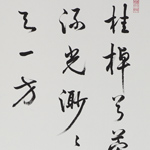 桂棹兮蘭
流光渺〻
天一方